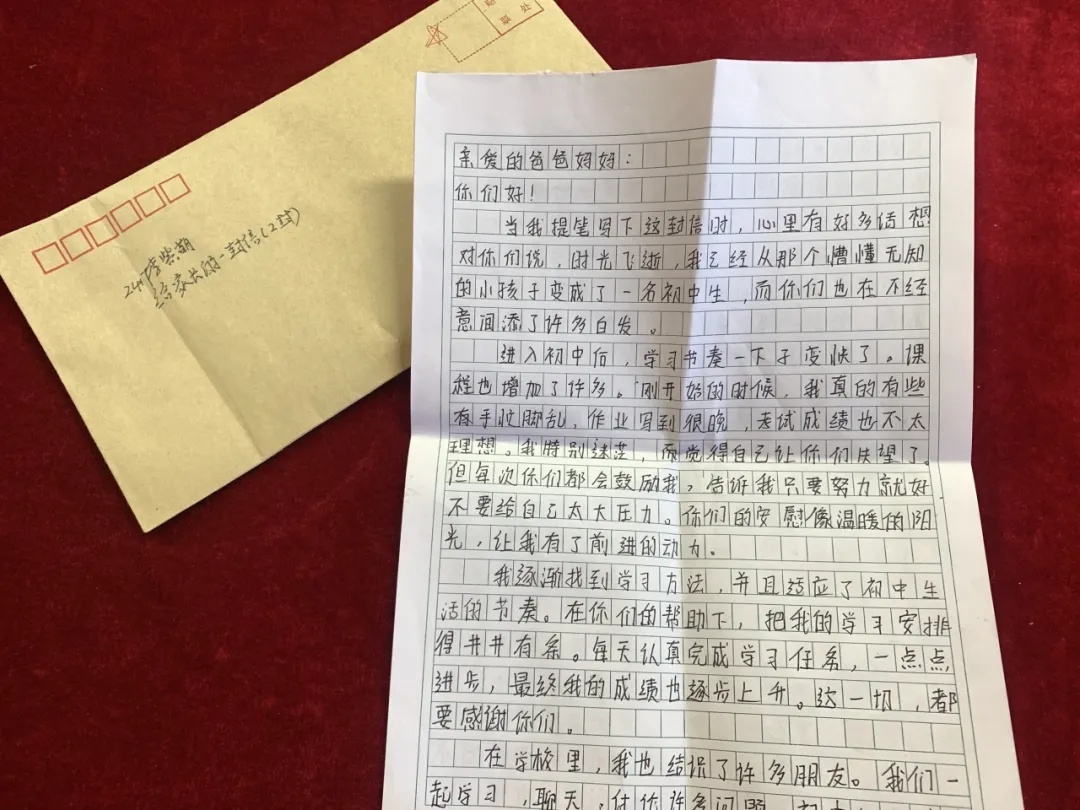 给家长的一封信(2封)
亲爱的爸爸妈妈：
你们好！
当我提笔写下这封信时，心里有好多话想
对你们说，时光飞逝，我已经从那个懵懂无知
的小孩子变成了一名初中生，而你们也在不经
意间添了许多白发。
进入初中后，学习节奏一下子变快了。课
程也增加了许多。刚开始的时候，我真的有些
手忙脚乱，作业写到很晚，考试成绩也不太
理想。我特别迷茫，而觉得自己让你们失望了。
但每次你们都会鼓励我，告诉我只要努力就好
不要给自己太大压力。你们的安慰像温暖的阳
光，让我有了前进的动力。
我逐渐找到学习方法，并且适应了初中生
活的节奏。在你们的帮助下，把我的学习安排
得井井有条。每天认真完成学习任务，一点点
进步，最终我的成绩也逐步上升。这一切，都
要感谢你们。
在学校里，我也结识了许多朋友。我们一
起学习，聊天，许多问题，